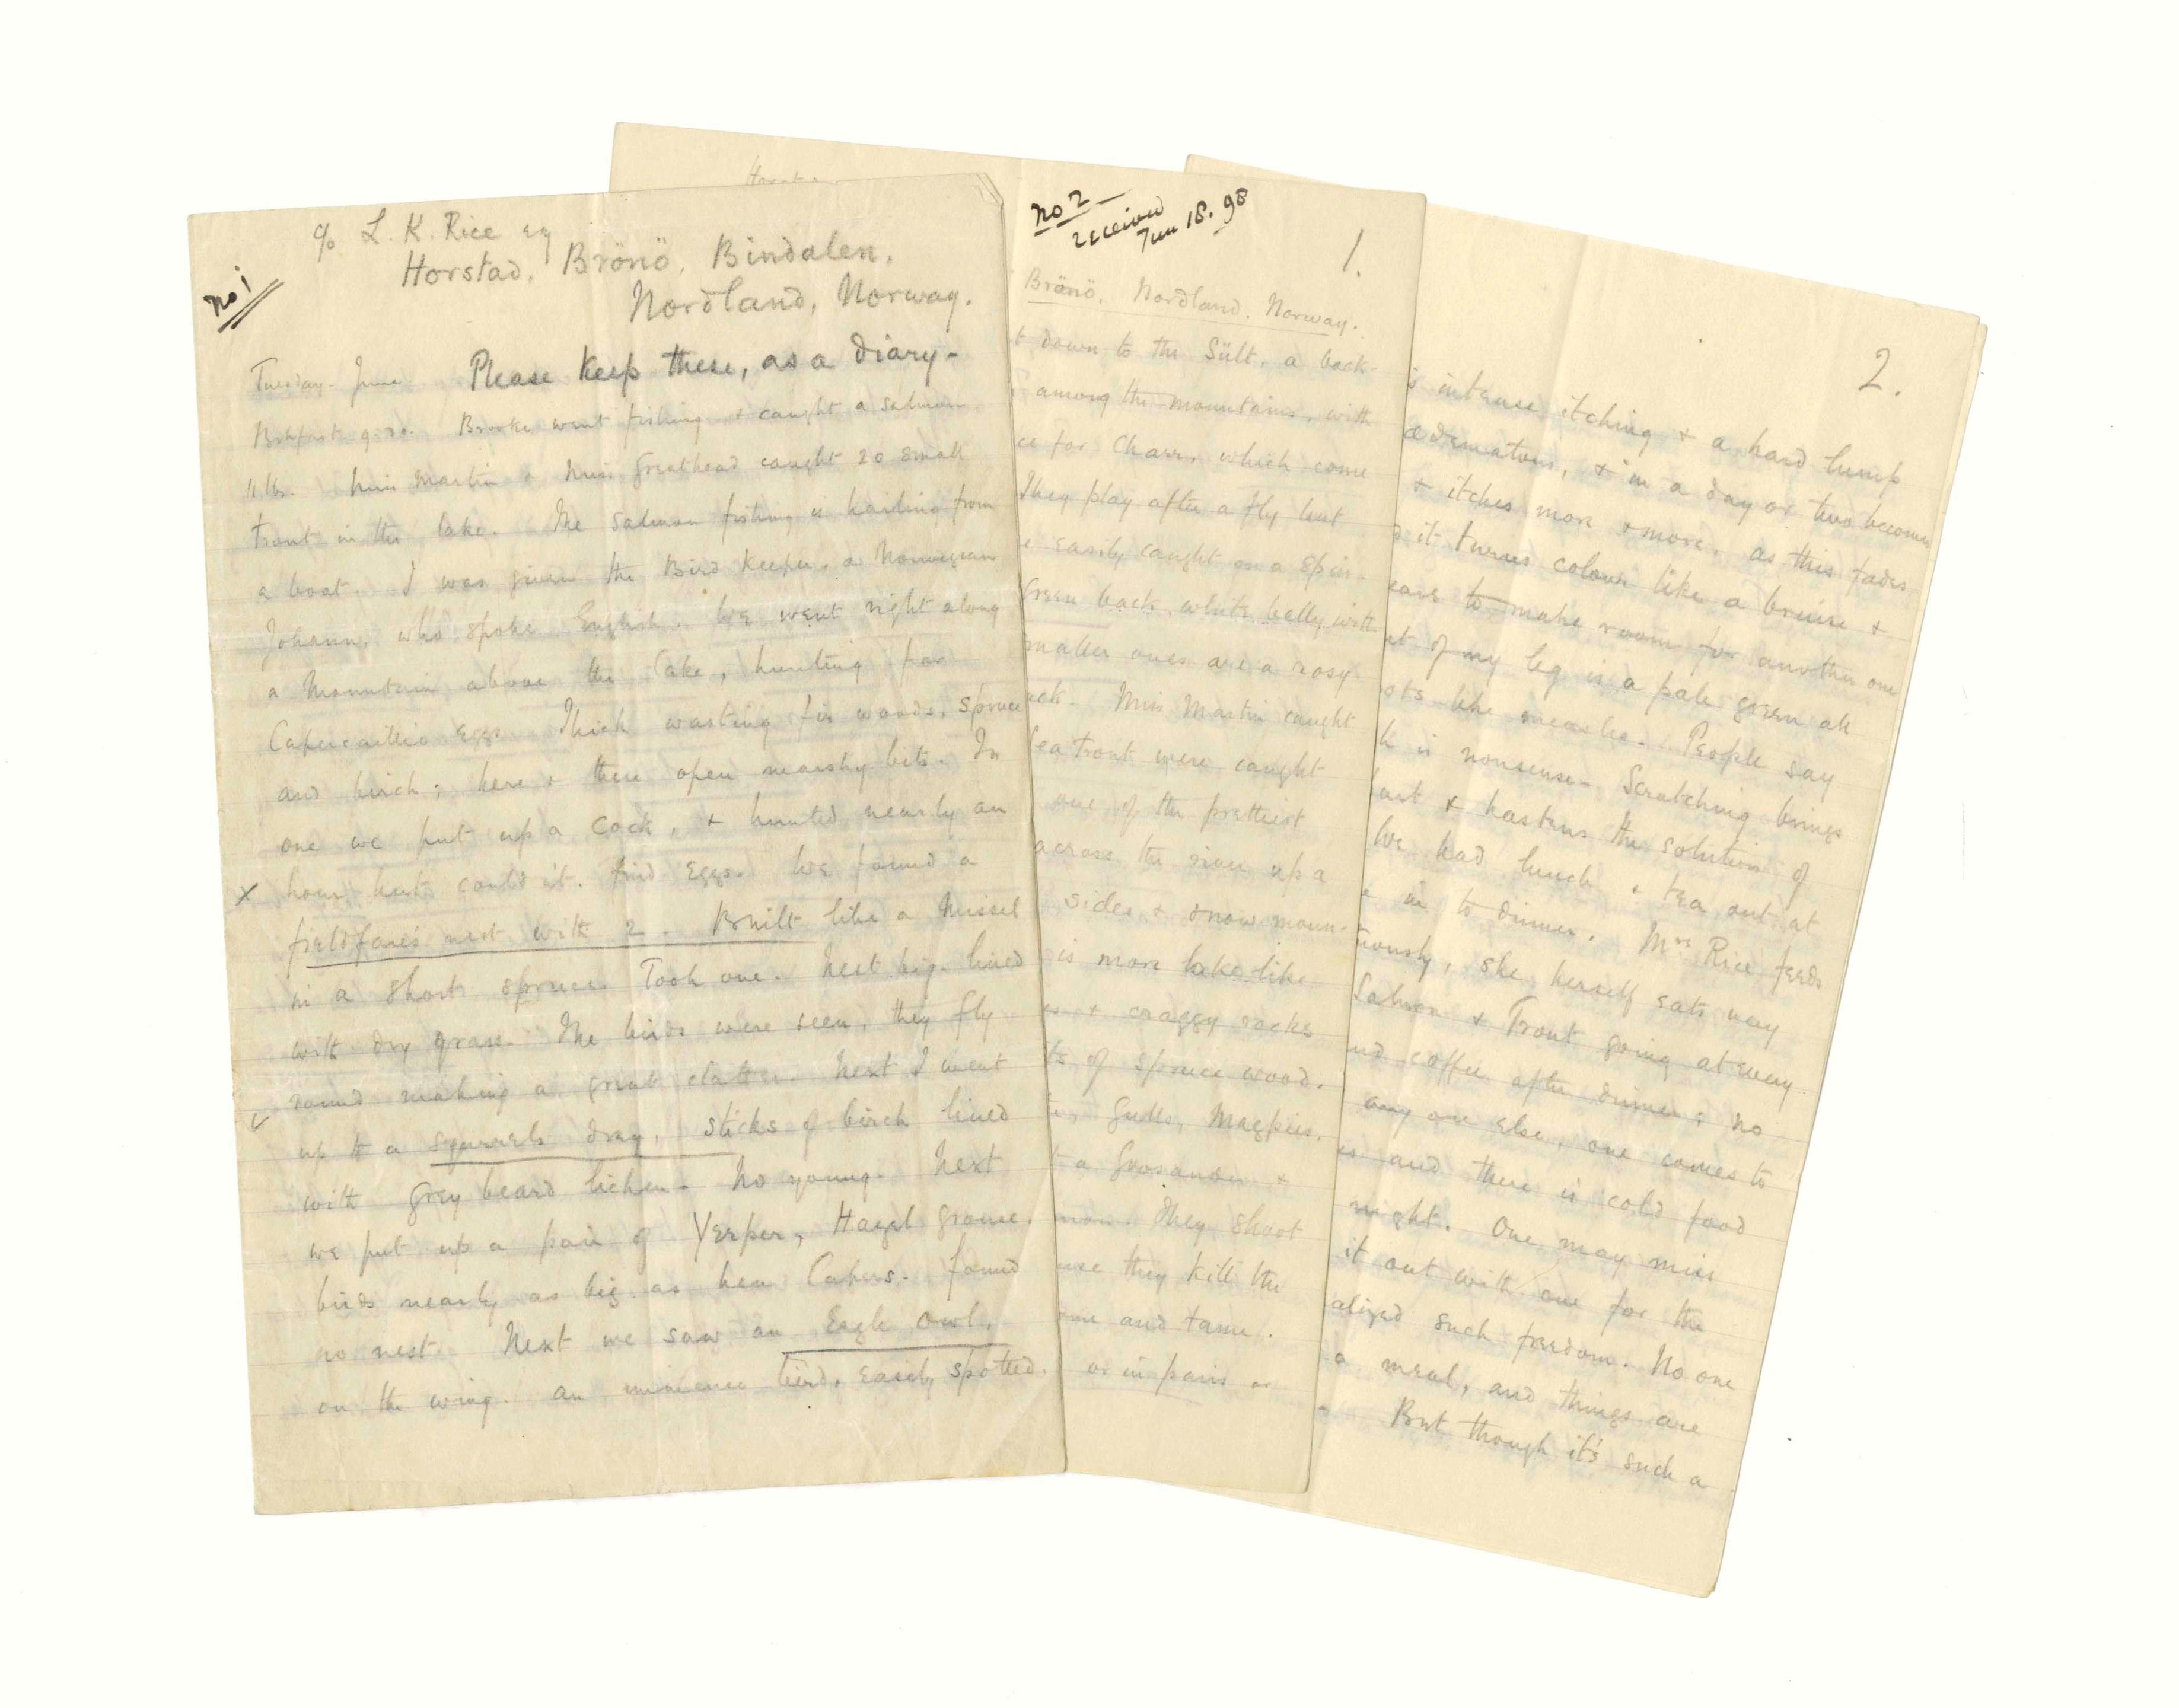 c/o L. K. Rice Esq
Horstad, Brönö, Bindalen,
Nordland, Norway.
no 1
Tuesday. June Please keep these, as a diary-
Bkfast 9.30. Brooke went fishing & caught a salmon
11 lbs. Miss Martin & Miss Greathead caught 20 small
trout in the lake. The salmon fishing is harling from
a boat. I was given the Bird Keeper, a Norwegian
Johann, who spoke English. We went right along
a Mountain above the lake, hunting for
Capercaillie eggs. Thick wasting fir woods, spruce
and birch; here & there open marshy bits. In
one we put up a cock, & hunted nearly an
x hour but could n't. find eggs. We found a
fieldfare's nest with 2. Built like a Missel
in a short spruce. Took one. Nest big. lined
with dry grass. The birds were seen, they fly
round making a great clatter. Next I went
up to a squirrels dray, sticks of birch lined
with grey beard lichen. No young. Next
we put up a pair of Yerper, Hazel grouse.
birds nearly as big as hen Capers. found
no nest. Next we saw an Eagle Owl,
on the wing. an immense bird, easily spotted.
no 2
received
Jun 18. 98
1.
Brönö, Nordland, Norway.
t down to the Sült, a back-
among the mountains, with
ce for Charr, which come
They play after a fly but
e easily caught on a spin-
Green back white belly with
smaller ones are a rosy
ack. Miss Martin caught
Sea Trout were caught
one of the prettiest
across the river up a
sides & snow moun-
is more lake like
es & craggy rocks
ts of spruce wood.
Gulls, Magpies,
t a Goosander &
mon. They shoot
use they kill the
ome and tame.
or in pairs or
2.
s intense itching & a hard lump
œdematous, & in a day or two becomes
& itches more & more. as this fades
d it turns colour like a bruise &
ears to make room for another one
et of my leg is a pale green all
ots like measles. People say
k is nonsense- Scratching brings
out & hastens the solution of
We had lunch & tea out at
e in to dinner. Mrs Rice feeds
iously, she herself eats very
Salmon & Trout going at every
nd coffee after dinner; no
any one else, one comes to
es and there is cold food
night. One may miss
it out with one for the
alized such freedom. No one
a meal, and things are
But though it's such a